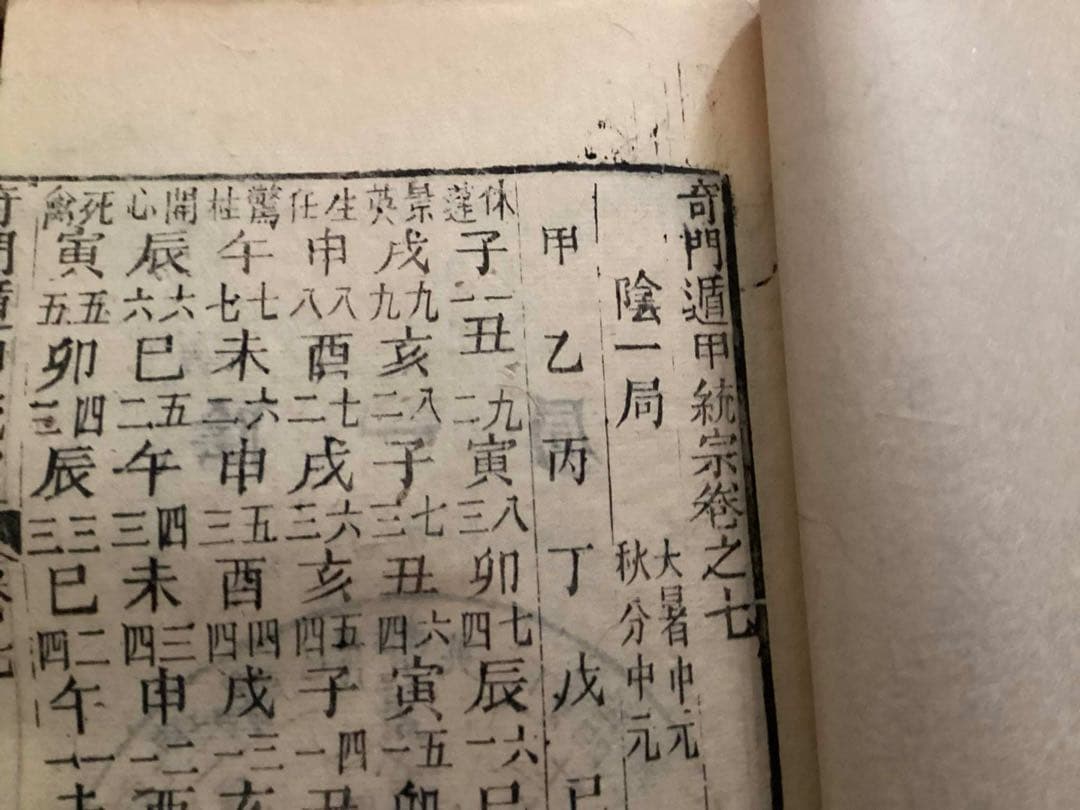 奇門遁甲統宗卷之七
陰一局 大暑中元
秋分中元
甲 乙 丙 丁 戊 己
休蓬 子 一一 丑 九二 寅 八三 卯 七四 辰 六一 巳
景英 戌 九九 亥 八二 子 七三 丑 六四 寅 五一 卯
生任 申 八八 酉 七二 戌 六三 亥 五四 子 四一 丑
驚柱 午 七七 未 六二 申 五三 酉 四四 戌 三一 亥
開心 辰 六六 巳 五二 午 四三 未 三四 申 二一 酉
死禽 寅 五五 卯 四三 辰 三三 巳 二四 午 一一 未